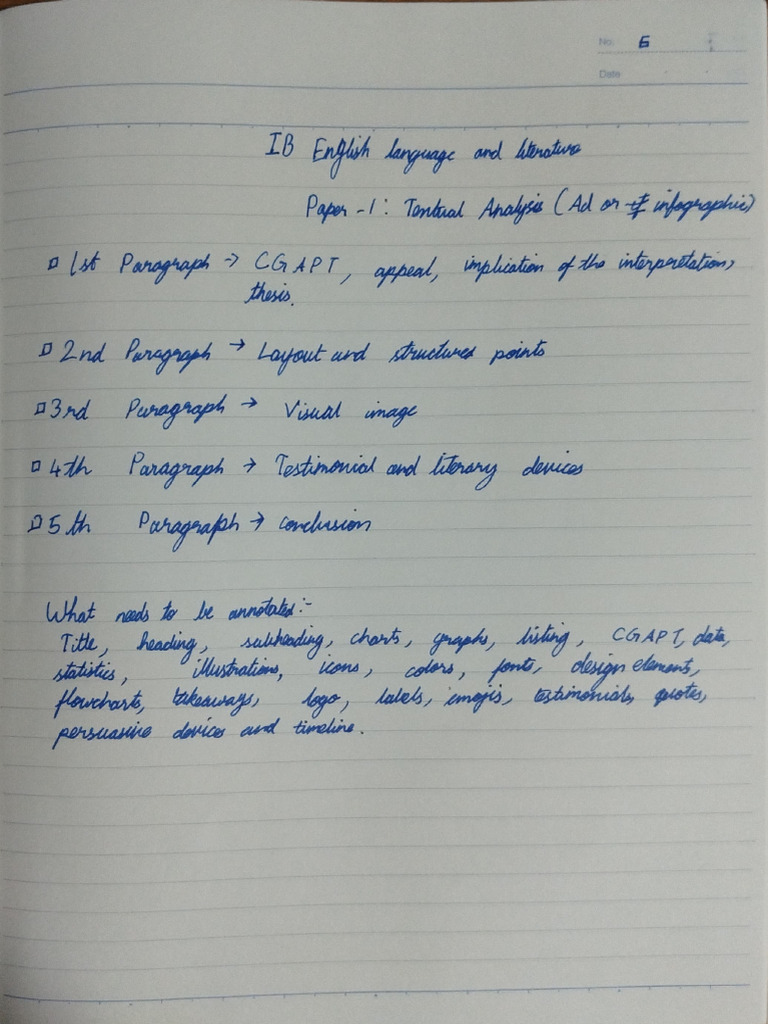 No. 6
Date
IB English language and literature
Paper -1: Textual Analysis (Ad or infographic)
1st Paragraph → CGAPT, appeal, implication of the interpretation,
thesis.
2nd Paragraph → Layout and structured points
3rd Paragraph → Visual image
4th Paragraph → Testimonial and literary devices
5th Paragraph → conclusion
What needs to be annotated:-
Title, heading, subheading, charts, graphs, listing, CGAPT, data,
statistics, illustrations, icons, colors, fonts, design elements,
flowcharts, takeaways, logo, labels, emojis, testimonials, quotes,
persuasive devices and timeline.